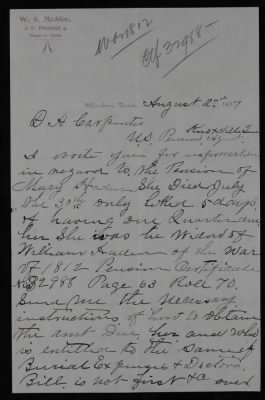 W. S. McAfee,
J. P. Precinct 4,
War 1812
Cf 32988
August 2nd 1907
D H Carpenter
Knoxville Tenn
U.S. Pension Agent
I write you for information
in regard to the Pension of
Mary She Died July
the 30th only lived 5 days
of having one Quarter due
her She was the Widow of
William Haden of the War
of 1812 Pension Certificate
32988 Page 63 Role 70.
Send me the necessary
instructions of how to obtain
the amt due her and who
is entitled to the same
Burial Expenses & Doctors
Bill, is not first over